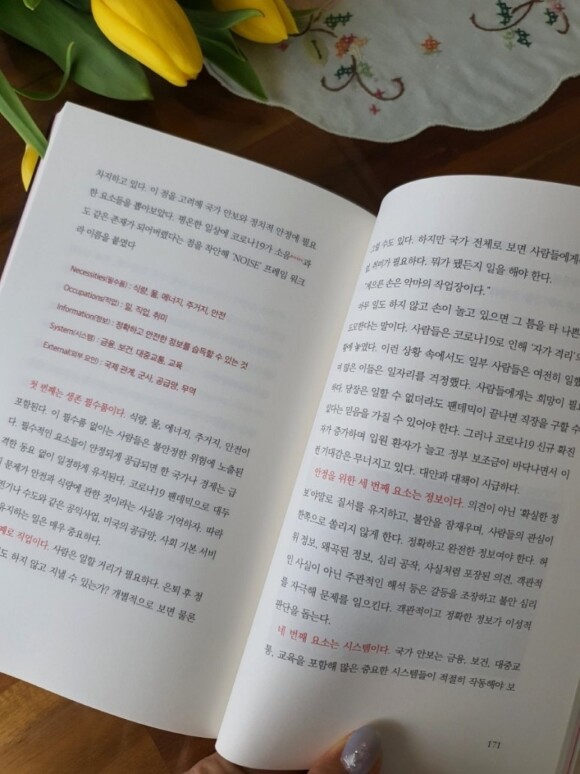 차지하고 있다. 이 점을 고려해 국가 안보와 정치적 안정에 필요
한 요소들을 뽑아보았다. 평온한 일상에 코로나19가 소음과
도 같은 존재가 되어버렸다는 점을 착안해 'NOISE' 프레임 워크
라 이름을 붙였다
Necessities(필수품) : 식량, 물, 에너지, 주거지, 안전
Occupations(직업) : 일, 직업, 취미
Information(정보) : 정확하고 안전한 정보를 습득할 수 있는 것
System(시스템) : 금융, 보건, 대중교통, 교육
External(외부 요인) : 국제 관계, 군사, 공급망, 무역
첫 번째는 생존 필수품이다. 식량, 물, 에너지, 주거지, 안전이
포함된다. 이 필수품 없이는 사람들은 불안정한 위험에 노출된
다. 필수적인 요소들이 안정되게 공급되면 한 국가나 경제는 급
격한 동요 없이 일정하게 유지된다. 코로나19 팬데믹으로 대두
문제가 안전과 식량에 관한 것이라는 사실을 기억하자. 따라
전기나 수도와 같은 공익사업, 미국의 공급망, 사회 기본 서비
유지하는 일은 매우 중요하다.
째로 직업이다. 사람은 일할 거리가 필요하다. 은퇴 후 정
도 하지 않고 지낼 수 있는가? 개별적으로 보면 물론
그럴 수도 있다. 하지만 국가 전체로 보면 사람들에게
취미가 필요하다. 뭐가 됐든지 일을 해야 한다.
"게으른 손은 악마의 작업장이다."
아무 일도 하지 않고 손이 놀고 있으면 그 틈을 타 나쁜
도모한다는 말이다. 사람들은 코로나19로 인해 '자가 격리'
놓였다. 이런 상황 속에서도 일부 사람들은 여전히 일했
많은 이들은 일자리를 걱정했다. 사람들에게는 희망이 필요
하다. 당장은 일할 수 없더라도 팬데믹이 끝나면 직장을 구할 수
있다는 믿음을 가질 수 있어야 한다. 그러나 코로나19 신규 확진
자가 증가하며 입원 환자가 늘고 정부 보조금이 바닥나면서 이
런 기대감은 무너지고 있다. 대안과 대책이 시급하다.
안정을 위한 세 번째 요소는 정보이다. 의견이 아닌 '확실한 정
보'야말로 질서를 유지하고, 불안을 잠재우며, 사람들의 관심이
한쪽으로 쏠리지 않게 한다. 정확하고 완전한 정보여야 한다. 허
위 정보, 왜곡된 정보, 심리 공작, 사실처럼 포장된 의견, 객관적
인 사실이 아닌 주관적인 해석 등은 갈등을 조장하고 불안 심리
를 자극해 문제를 일으킨다. 객관적이고 정확한 정보가 이성적
판단을 돕는다.
네 번째 요소는 시스템이다. 국가 안보는 금융, 보건, 대중교
통, 교육을 포함해 많은 중요한 시스템들이 적절히 작동해야 보
171